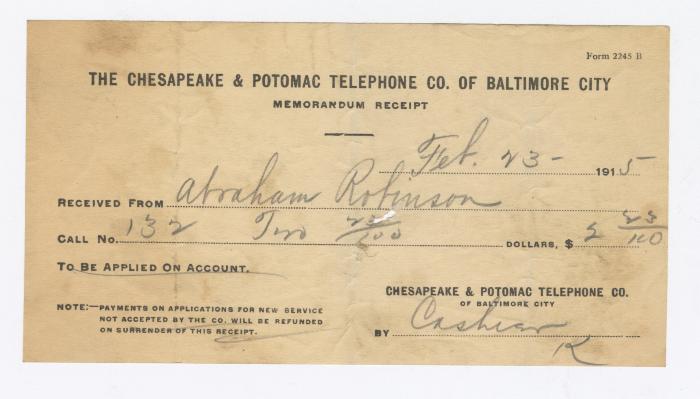 Form 2245 B
THE CHESAPEAKE & POTOMAC TELEPHONE CO. OF BALTIMORE CITY
MEMORANDUM RECEIPT
Feb. 23- 1915
RECEIVED FROM Abraham Robinson
CALL No. 132 Two 25/100 DOLLARS, $ 2 25/100
TO BE APPLIED ON ACCOUNT.
CHESAPEAKE & POTOMAC TELEPHONE CO.
OF BALTIMORE CITY
NOTE:—PAYMENTS ON APPLICATIONS FOR NEW SERVICE
NOT ACCEPTED BY THE CO. WILL BE REFUNDED
ON SURRENDER OF THIS RECEIPT.
BY Cashier
K